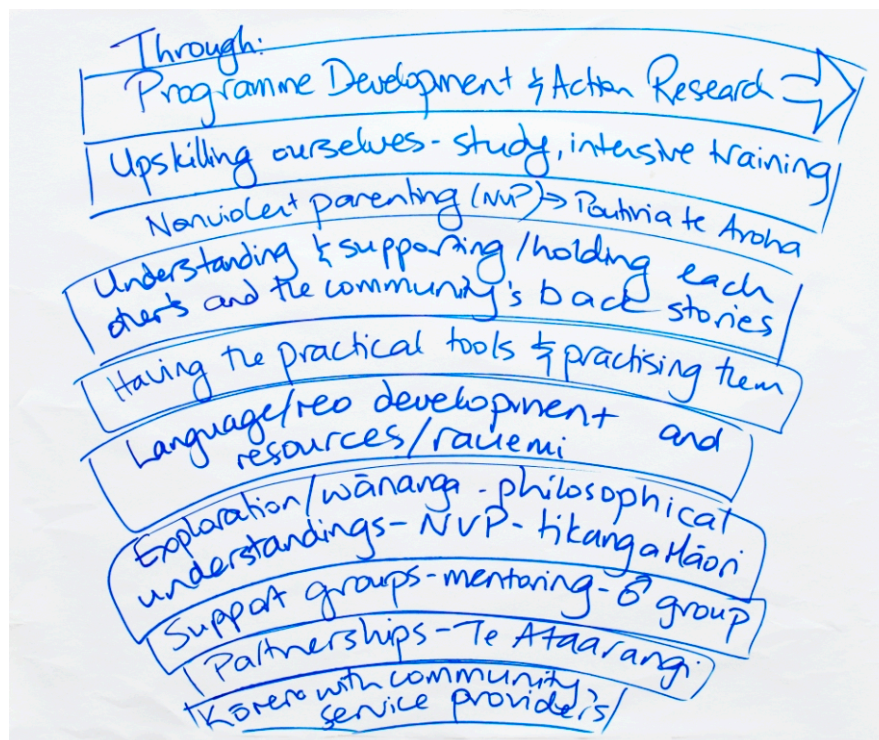 Through:
Programme Development & Action Research
Upskilling ourselves - study, intensive training
Nonviolent parenting (NVP) → Poutiria te Aroha
Understanding & supporting/holding each
other's and the community's back stories
Having the practical tools & practising them
Language/reo development and
resources/rauemi
Exploration/wānanga - philosophical
understandings - NVP - tikanga Māori
Support groups - mentoring - ♂ group
Partnerships - Te Ataarangi
Kōrero with community
service providers